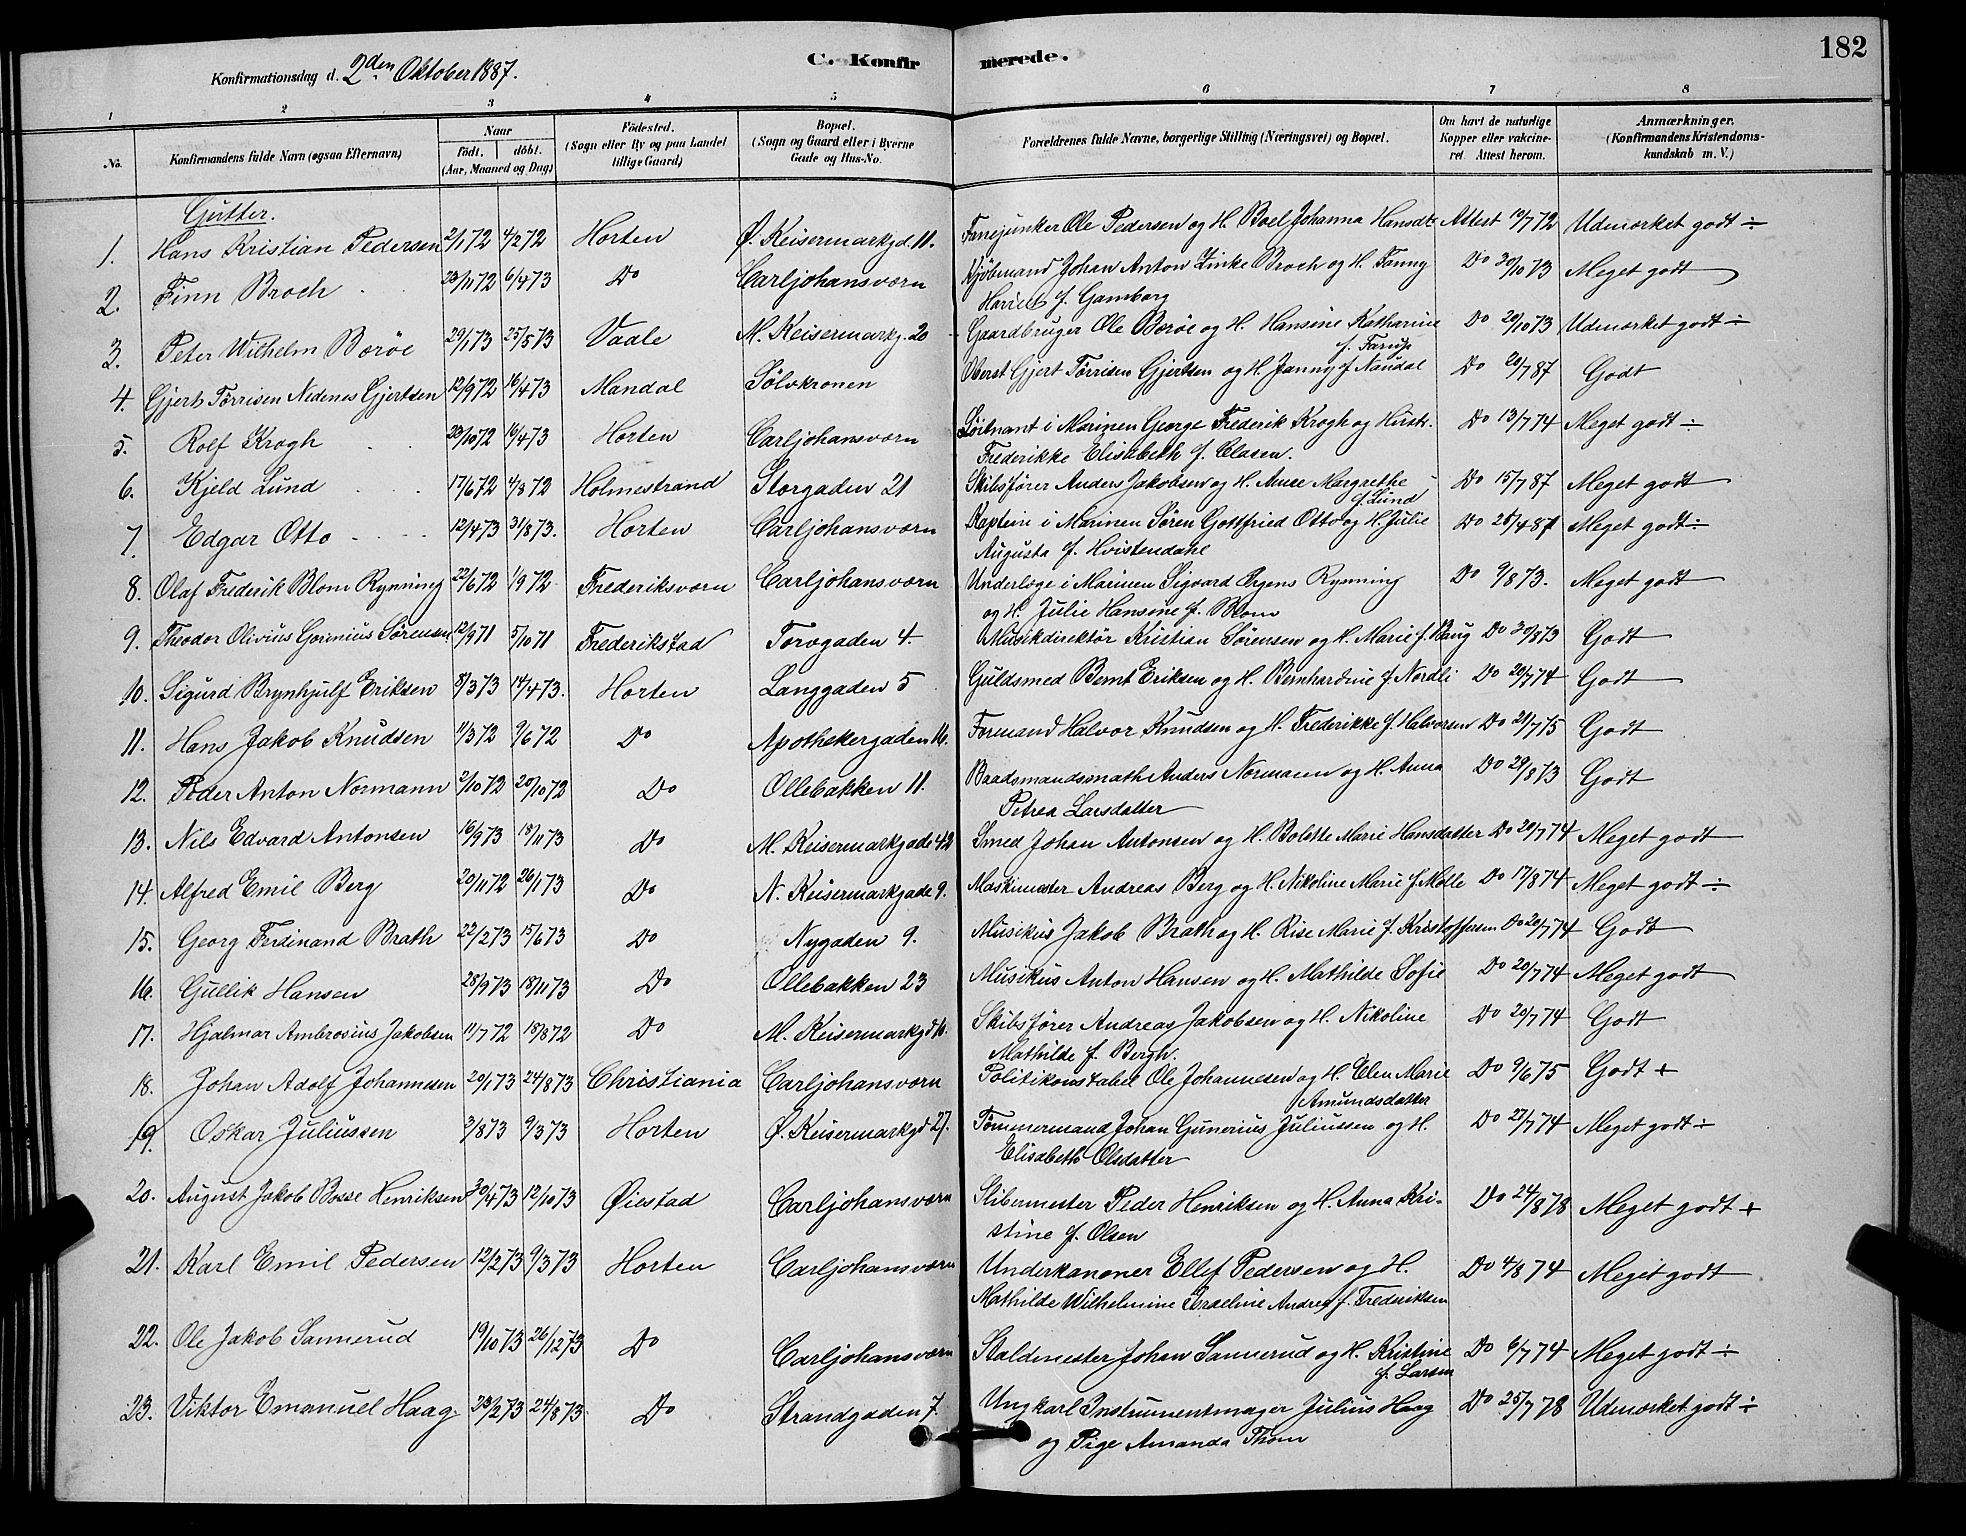 182
C. Konfirmerede.
Konfirmationsdag d. 2den Oktober 1887.
1 2 3 4 5 6 7 8
No. Konfirmandens fulde Navn (ogsaa Efternavn) Naar födt. döbt. (Aar, Maaned og Dag) Födested. (Sogn eller By og paa Landet tillige Gaard) Bopæl. (Sogn og Gaard eller i Byerne Gade og Hus-No. Forældrenes fulde Navne, borgerlige Stilling (Næringsvei) og Bopæl. Om havt de naturlige Kopper eller vakcineret. Attest herom. Anmærkninger. (Konfirmandens Kristendomskundskab m. V.)
Gutter.
1. Hans Kristian Pedersen 2/1 72 4/2 72 Horten Ø. Keisermarkgd 11. Ole Pedersen og H. Boel Johanna Hansdt. Attest 19/7 72 Udmærket godt ÷
2. Finn Broch 23/11 72 6/4 73 Do Carljohansværn Kjöbmand Johan Anton Zinke Broch og H. Fanny Do 30/10 73 Meget godt
Harriet f. Gamborg
3. Peter Wilhelm Børøe 29/1 73 25/5 73 Vaale M. Keisermarkg. 20 Gaardbruger Ole Børøe og H. Hansine Katharine Do 20/10 73 Udmærket godt ÷
f. Farup
4. Gjert Tørrisen Nedenes Gjertsen 12/9 72 16/4 73 Mandal Sölvkronen Oberst Gjert Tørrisen Gjertsen og H. Janny f. Naudal Do 20/7 87 Godt
5. Rolf Krogh 20/10 72 16/4 73 Horten Carljohansværn Löitnant i Marinen George Frederik Krogh og Hustr. Do 13/7 74 Meget godt ÷
Frederikke Elisabeth f. Clasen.
6. Kjeld Lund 17/6 72 4/8 72 Holmestrand Storgaden 21 Skibsförer Anders Jakobsen og H. Anne Margrethe Do 15/7 87 Meget godt
f. Lund
7. Edgar Otto 12/4 73 31/8 73. Horten Carljohansværn Kaptein i Marinen Sören Gottfried Otto og H. Julie Do 25/4 87 Meget godt ÷
Augusta f. Hvistendahl
8. Olaf Frederik Blom Rynning 22/6 72 1/9 72 Frederiksværn Carljohansværn Underlæge i Marinen Sigvard Rynning Do 9/8 73. Meget godt
og H. Julie Hansine f. Blom
9. Theodor Olivius Gorinius Sörensen 12/9 71 5/10 71 Frederikstad Torvgaden 4. Musikdirektör Kristian Sörensen og H. Marie f. Haug Do 30/8 73 Godt
10. Sigurd Brynhjulf Eriksen 8/3 73 14/4 73. Horten Langgaden 5 Guldsmed Bernt Eriksen og H. Bernhardine f. Nordli Do 20/7 74 Godt
11. Hans Jakob Knudsen 11/3 72 9/6 72 Do Apothekergaden 16. Formand Halvor Knudsen og H. Frederikke f. Halvorsen Do 21/7 75 Godt
12. Peder Anton Normann 2/10 72 20/10 72 Do Ollebakken 11. Baadsmandsmath Anders Normann og H. Anna Do 29/8 73 Godt
Petrea Larsdatter
13. Nils Edvard Antonsen 16/9 73 18/11 73 Do M. Keisermarkgade 42 Smed Johan Antonsen og H. Bolette Marie Hansdatter Do 20/7 74 Meget godt
14. Alfred Emil Berg 20/11 72 26/1 73 Do N. Keisermarkgade 9. Maskimester Andreas Berg og H. Nikoline Marie f. Molle Do 17/8 74 Meget godt ÷
15. Georg Ferdinand Brath 22/2 73 15/6 73 Do Nygaden 9. Musikus Jakob Brath og H. Rise Marie f. Kristoffersen Do 20/7 74 Godt
16. Gullik Hansen 28/9 73 18/11 73 Do Ollebakken 23 Musikus Anton Hansen og H. Mathilde Sofie Do 20/7 74 Meget godt
17. Hjalmar Ambrosius Jakobsen 11/7 72 18/8 72 Do M. Keisermarkgd 16. Skibsförer Andreas Jakobsen og H. Nikoline Do 20/7 74 Godt
Mathilde f. Bergh.
18. Johan Adolf Johannesen 20/1 73 24/8 73 Christiania Carljohansværn Politikonstabel Ole Johannesen og H. Elen Marie Do 9/6 75 Godt +
Amundsdatter
19. Oskar Juliussen 3/8 73 9/3 73 Horten Ø. Keisermarkgd 27. Tömmermand Johan Gunerius Juliussen og H. Do 27/7 74 Meget godt ÷
Elisabeth Olsdatter
20. August Jakob Bosse Henriksen 30/4 73 12/10 73 Øiestad Carljohansværn Slibemester Peder Henriksen og H. Anna Kri- Do 24/8 78 Meget godt +
stine f. Olsen
21. Karl Emil Pedersen 12/2 73 9/3 73 Horten Carljohansværn Underkanoner Ellef Pedersen og H. Do 4/8 74 Meget godt
Mathilde Wilhelmine Israeline Andrea f. Frederiksen
22. Ole Jakob Sannerud 19/10 73 26/12 73 Do Carljohansværn Staldmester Johan Sannerud og H. Kristine Do 6/7 74 Meget godt ÷
f. Larsen
23. Viktor Emanuel Haag 23/2 73 24/8 73. Do Strandgaden 7. Ungkarl Instrumentmager Julius Haag Do 25/7 78 Udmærket godt ÷
og Pige Amanda Thom